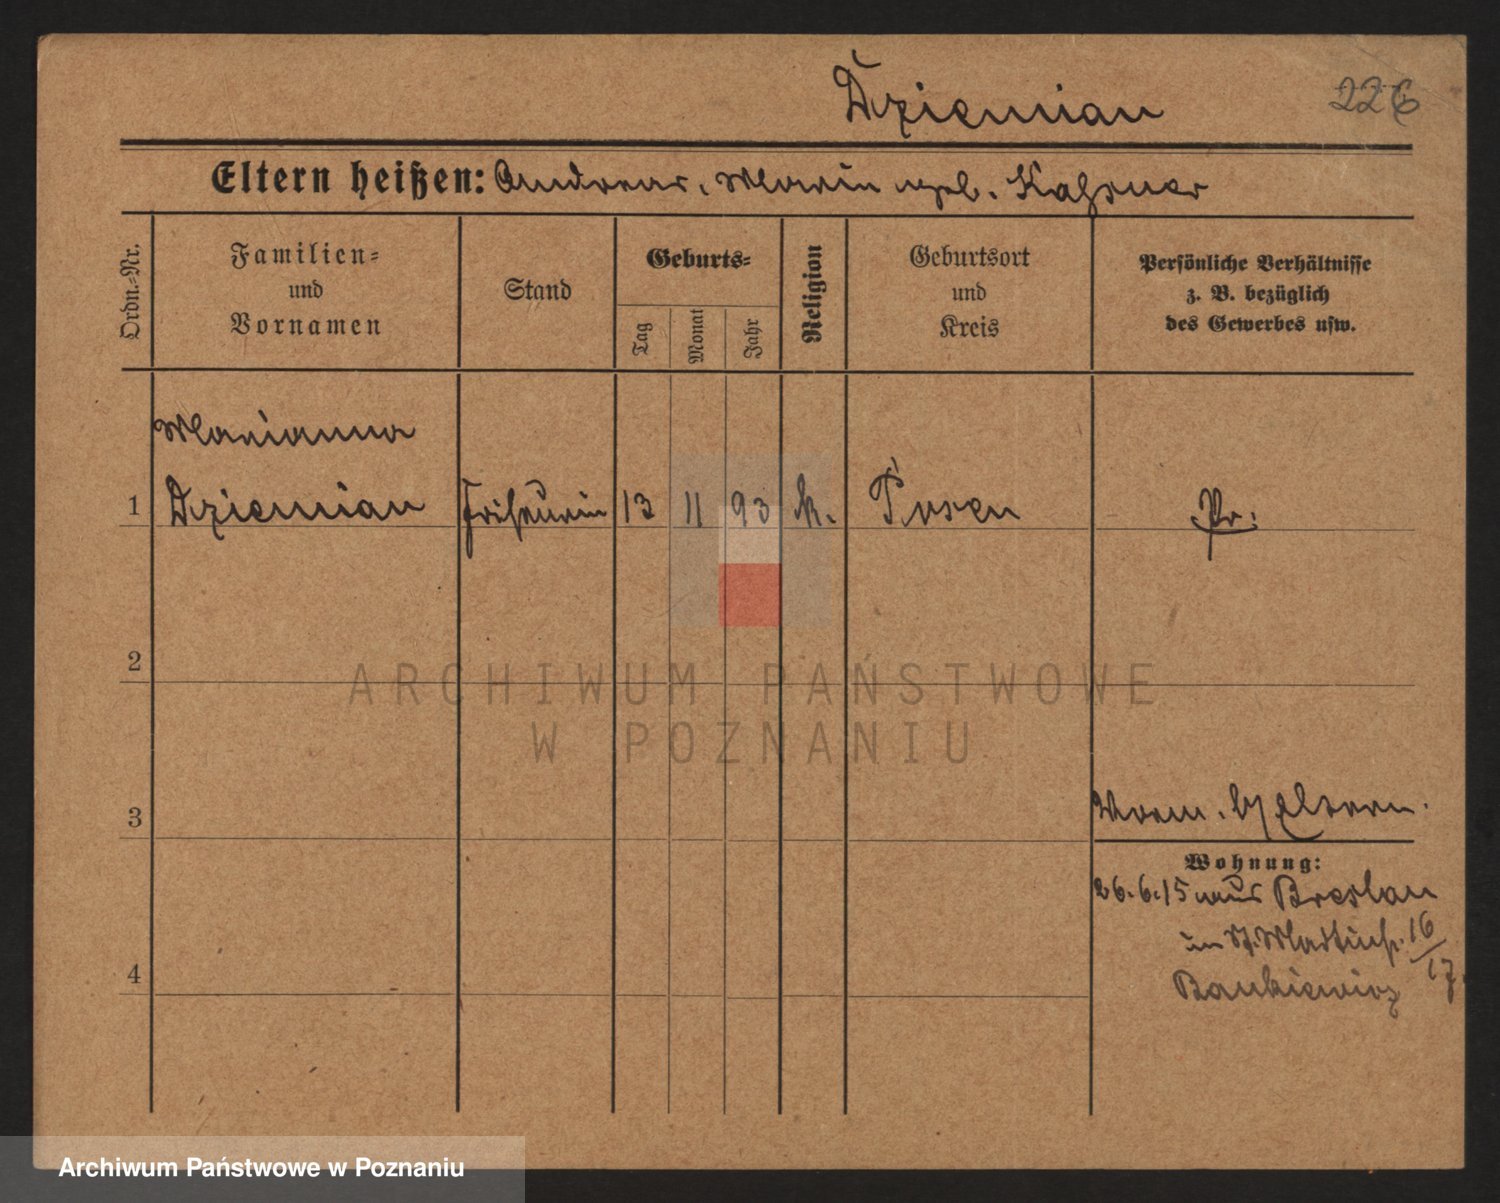 Dziemian 226
Eltern heißen: Andreas, Maria geb. Kastner
Ordn.-Nr.
Familien-
und
Vornamen
Stand
Geburts-
Tag
Monat
Jahr
Religion
Geburtsort
und
Kreis
Persönliche Verhältnisse
z. B. bezüglich
des Gewerbes usw.
Marianna
1 Dziemian 13 11 93 k. Posen Pr:
2
3 Eltern.
Wohnung:
26.6.15 aus Breslau
16/17
4 Bankiewicz
ARCHIWUM PAŃSTWOWE
W POZNANIU
Archiwum Państwowe w Poznaniu